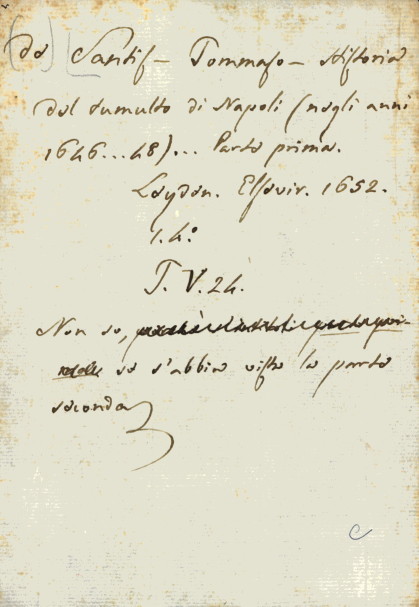 de Santis – Tommaso – Historia
del tumulto di Napoli (negli anni
1646...48)... Parte prima.
Leyden. Elsevir. 1652.
1. 4°
T. V. 24.
Non so,
se s'abbia visto la parte
seconda
C